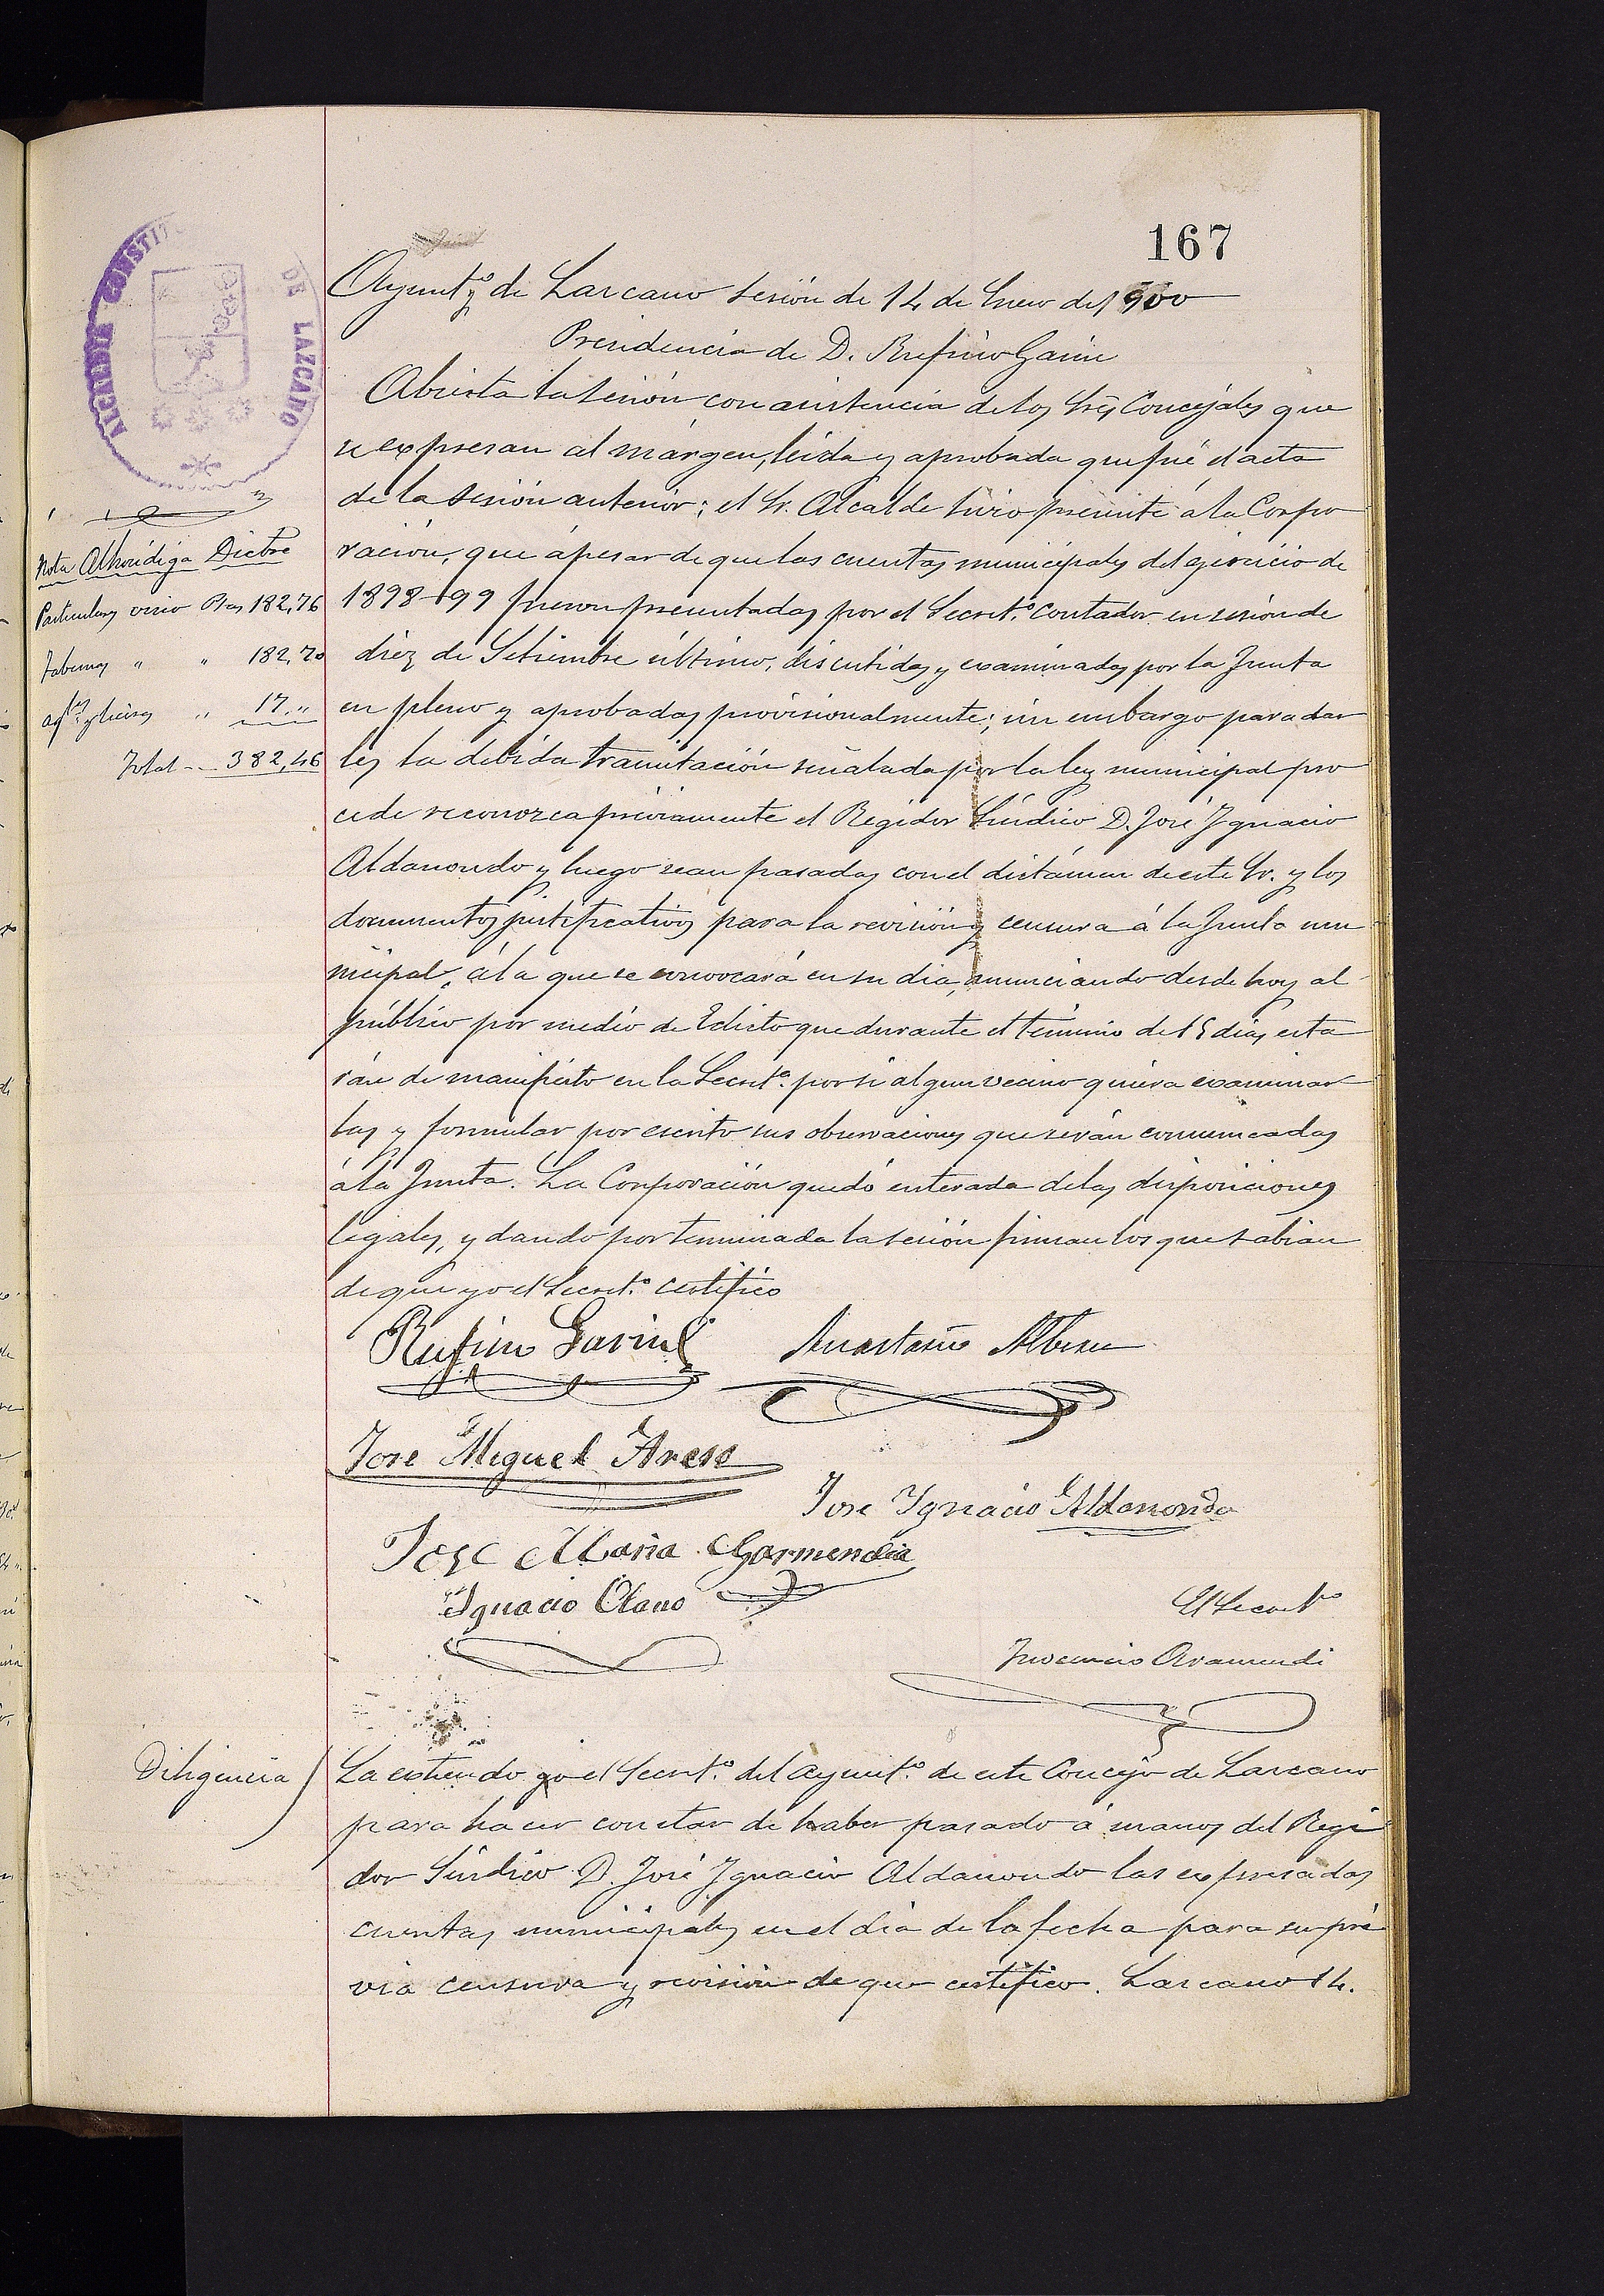 167
ALCALDIA CONSTIT
DE LAZCANO
Ayuntº de Lazcano sesión de 14 de Enero de 1900
Presidencia de D. Rufino Garin
Abierta la sesión con asistencia de los Sres Concejales que
se expresan al márgen, leida y aprobada que fué el acta
de la sesión anterior; el Sr. Alcalde hizo presente á la Corpo
ración, que ápesar de que las cuentas municipales del ejercicio de
1898-99 fueron presentadas por el Secretº contador en sesión de
diez de Setiembre último, discutidas y examinadas por la Junta
en pleno y aprobadas provisionalmente; sin embargo para dar
les la debida tramitación señalada por la ley municipal pro
cede reconozca préviamente el Regidor Síndico D. José Ygnacio
Aldanondo y luego sean pasadas con el dictámen de este Sr. y los
documentos justificativos para la revisión y censura á la Junta mu
nicipal, á la que se convocará en su dia, anunciando desde hoy al
público por medio de Edicto que durante el término de 15 dias esta
rán de manifiesto en la Secretª por si algun vecino quiera examinar
las y formular por escrito sus observaciones que serán comunicadas
á la Junta. La Corporación quedó enterada de las disposiciones
legales, y dando por terminada la sesión firman los que sabian
de que yo el Secretº certifico
Nota Alhóndiga Dicbre
Particulares vino Ptas 182,76
Tabernas " " 182,70
agtes y licores " 17,"
Total .. 382,46
Rufino Garin Anastasio Alberu
Jose Miguel Areso
Jose Ygnacio Aldanondo
Jose Maria Garmendia
Ygnacio Olano
El Secretº
Inocencio Aramendi
Diligencia
La estiendo yo el Secretº del Ayuntº de este Concejo de Lazcano
para hacer constar de haber pasado á manos del Regi
dor Síndico D. José Ygnacio Aldanondo las expresadas
cuentas municipales en el dia de la fecha para su pré
via censura y revisión de que certifico. Lazcano 14.